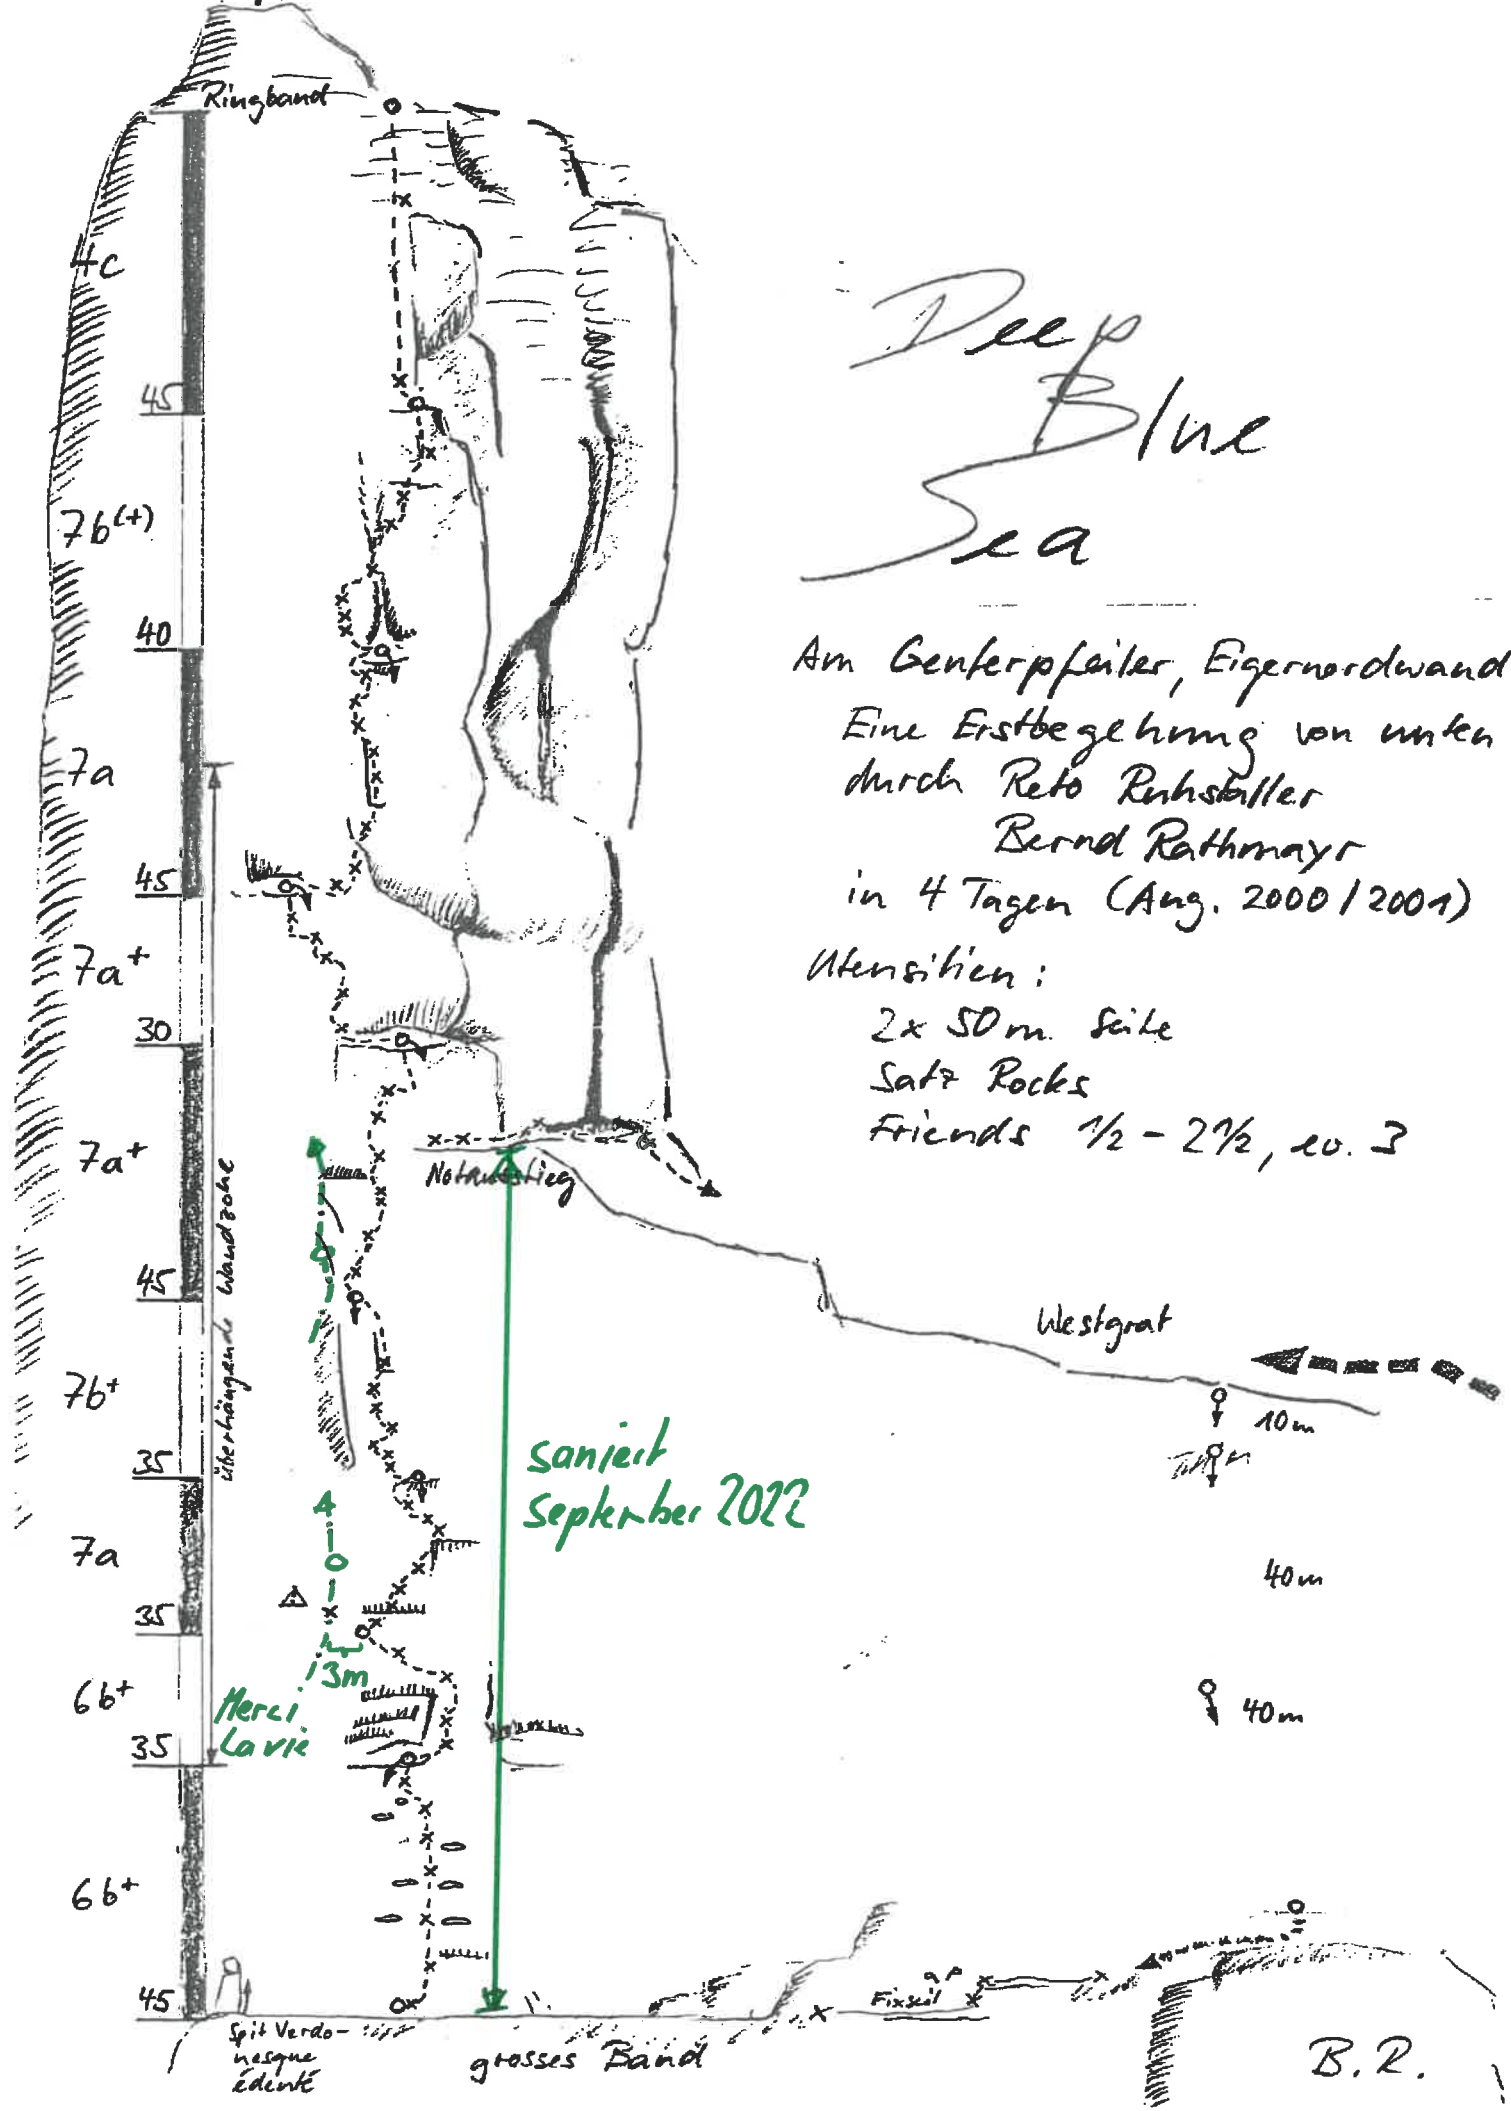 Ringband
4c
45
7b(+)
40
7a
45
7a+
30
7a+
45
7b+
35
7a
35
6b+
35
6b+
45
überhängende Wandzone
Deep
Blue
Sea
Am Genferpfeiler, Eigernordwand
Eine Erstbegehung von unten
durch Reto Ruhstaller
Bernd Rathmayr
in 4 Tagen (Aug. 2000/2001)
Utensilien:
2x 50m Seile
Satz Rocks
Friends 1/2 - 2 1/2, ev. 3
Notausstieg
Westgrat
10m
40m
40m
saniert
September 2022
3m
Merci
la vie
Fixseil
Spit Verdo-
nesque
édenté
grosses Band
B.R.